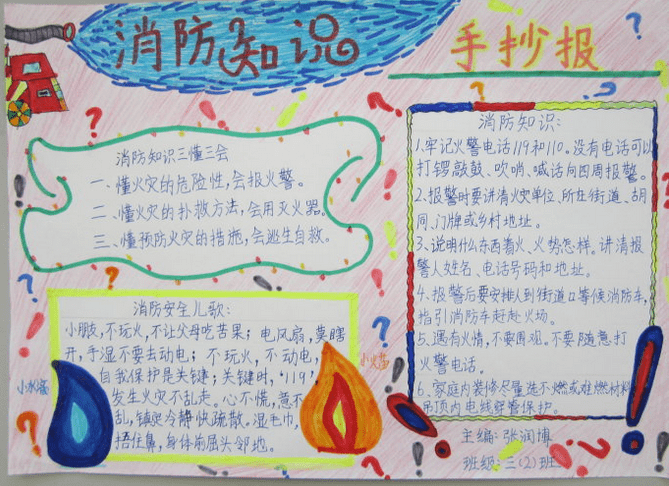 消防知识
手抄报
消防知识三懂三会
一、懂火灾的危险性,会报火警。
二、懂火灾的扑救方法,会用灭火器。
三、懂预防火灾的措施,会逃生自救。
消防安全儿歌:
小朋友,不玩火,不让父母吃苦果;电风扇,莫瞎
开,手湿不要去动电;不玩火,不动电,
自我保护是关键;关键时,'119',
发生火灾不乱走。心不慌,意不
乱,镇灾冷静快疏散。湿毛巾,
捂住鼻,身体前屈头邻地。
小水滴
小火苗
消防知识:
1.牢记火警电话119和110。没有电话可以
打锣敲鼓、吹哨、喊话向四周报警。
2.报警时要讲清火灾单位、所在街道、胡
同、门牌或乡村地址。
3、说明什么东西着火、火势怎样。讲清报
警人姓名、电话号码和地址。
4、报警后要安排人到街道口等候消防车,
指引消防车赶赴火场。
5、遇有火情,不要围观。不要随意打
火警电话。
6、家庭内装修尽量选不燃或难燃材料
吊顶内电线穿管保护。
主编:张润博
班级:三(2)班